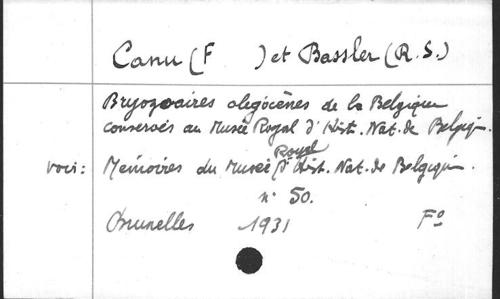 Canu (F ) et Bassler (R.S.)
Bryozoaires oligocènes de la Belgique
conservés au Musée Royal d'Hist. Nat. de Belgiq.
Royal
voir: Mémoires du Musée d'Hist. Nat. de Belgique.
n° 50.
Bruxelles 1931 F°